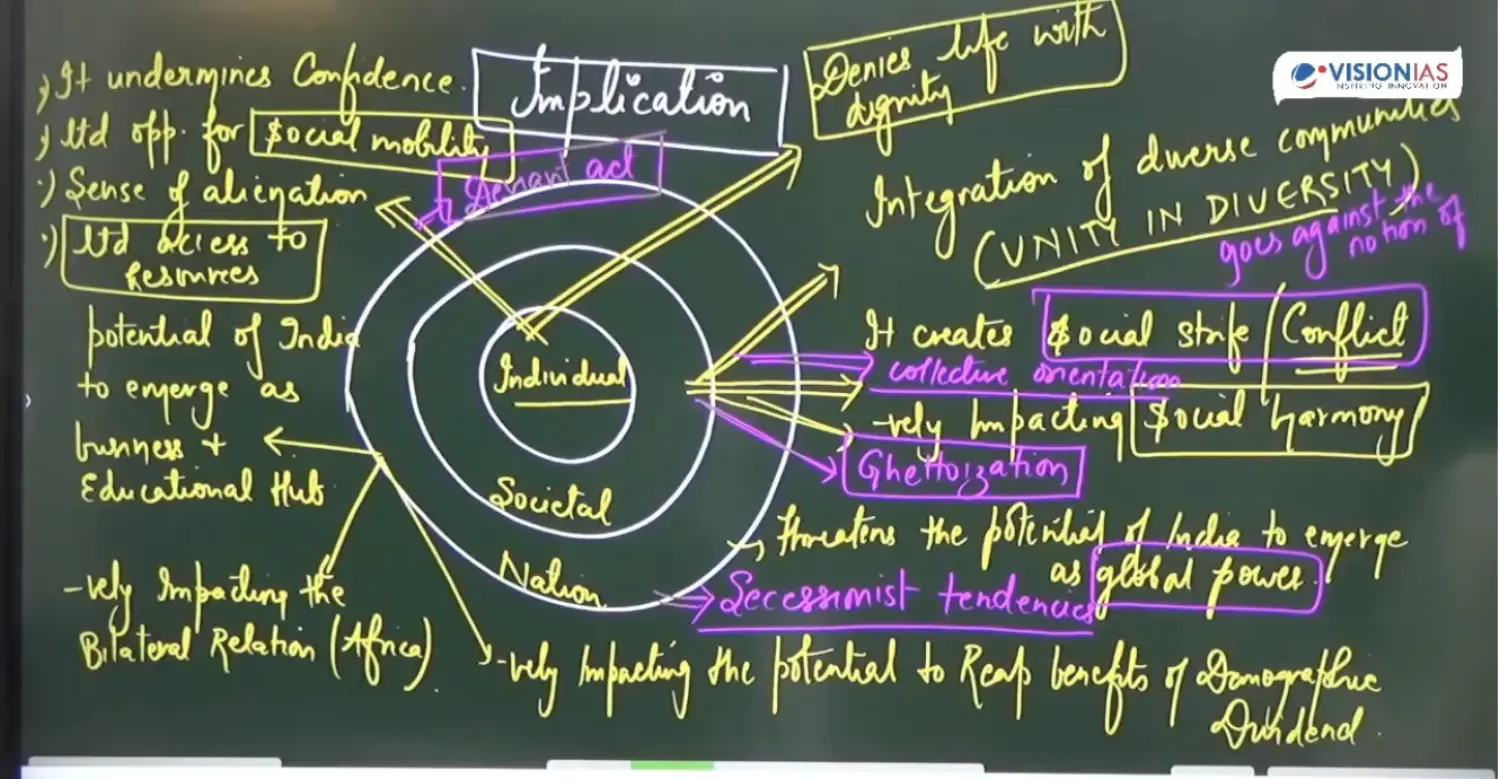 Implication
VISIONIAS
INSPIRING INNOVATION
It undermines Confidence.
ltd opp. for Social mobility
Sense of alienation
ltd access to
Resources
Deviant act
Denies life with
dignity
Integration of diverse communities
(UNITY IN DIVERSITY)
goes against the
notion of
It creates Social strife / Conflict
collective orientation
-vely Impacting Social harmony
Ghettoization
Individual
Societal
Nation
potential of India
to emerge as
business +
Educational Hub
-vely Impacting the
Bilateral Relation (Africa)
threatens the potential of India to emerge
as global power.
Secessionist tendencies
-vely Impacting the potential to Reap benefits of Demographic
Dividend.